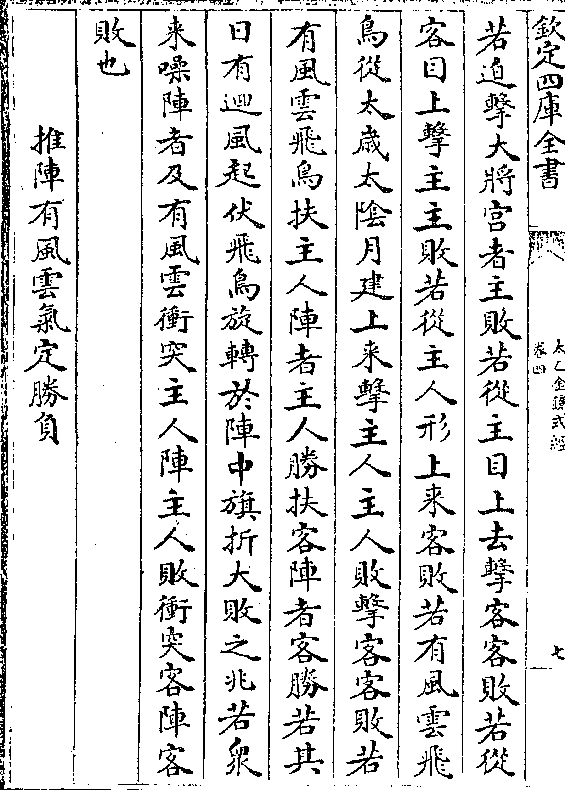 欽定四庫全書
太乙金鏡式經
卷四
七
若迫擊大將宫者主敗若從主目上去擊客客敗若從
客目上擊主主敗若從主人形上来客敗若有風雲飛
鳥從太歳太隂月建上来擊主人主人敗擊客客敗若
有風雲飛鳥扶主人陣者主人勝扶客陣者客勝若其
日有迴風起伏飛鳥旋轉於陣中旗折大敗之兆若衆
来噪陣者及有風雲衝突主人陣主人敗衝突客陣客
敗也
推陣有風雲氣定勝負